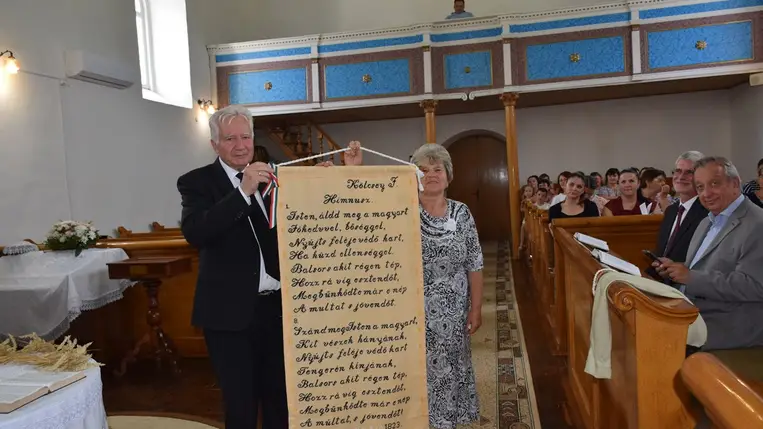 Kölcsey F.
Himnusz
1.
Isten, áldd meg a magyart
Jókedvvel, bőséggel,
Nyújts feléje védő kart,
Ha küzd ellenséggel,
Balsors akit régen tép,
Hozz rá víg esztendőt,
Megbűnhődte már e nép
A multat s jövendőt.
8.
Szánd meg Isten a magyart,
Kit vészek hányának,
Nyújts feléje védő kart
Tengerén kínjának,
Balsors akit régen tép,
Hozz rá víg esztendőt,
Megbűnhődte már e nép
A multat, s jövendőt!
1823